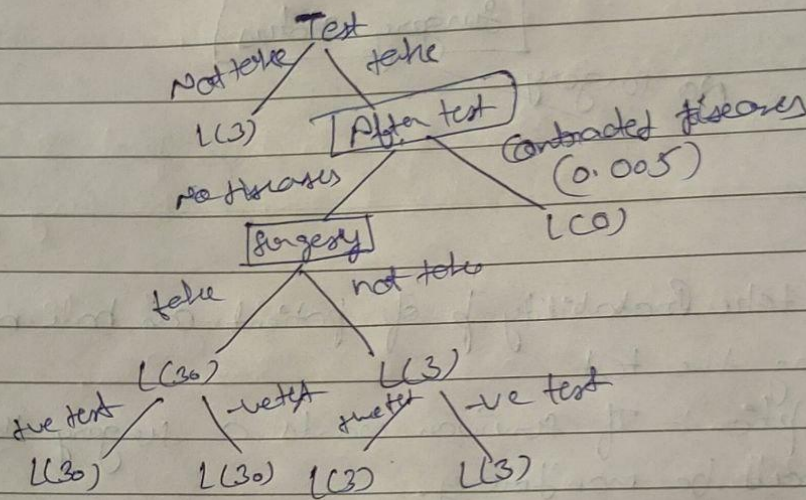 Test
Not take take
L(3) After test
Contracted diseases
(0.005)
No diseases
L(0)
Surgery
take not take
L(30) L(3)
+ve test -ve test +ve test -ve test
L(30) L(30) L(3) L(3)